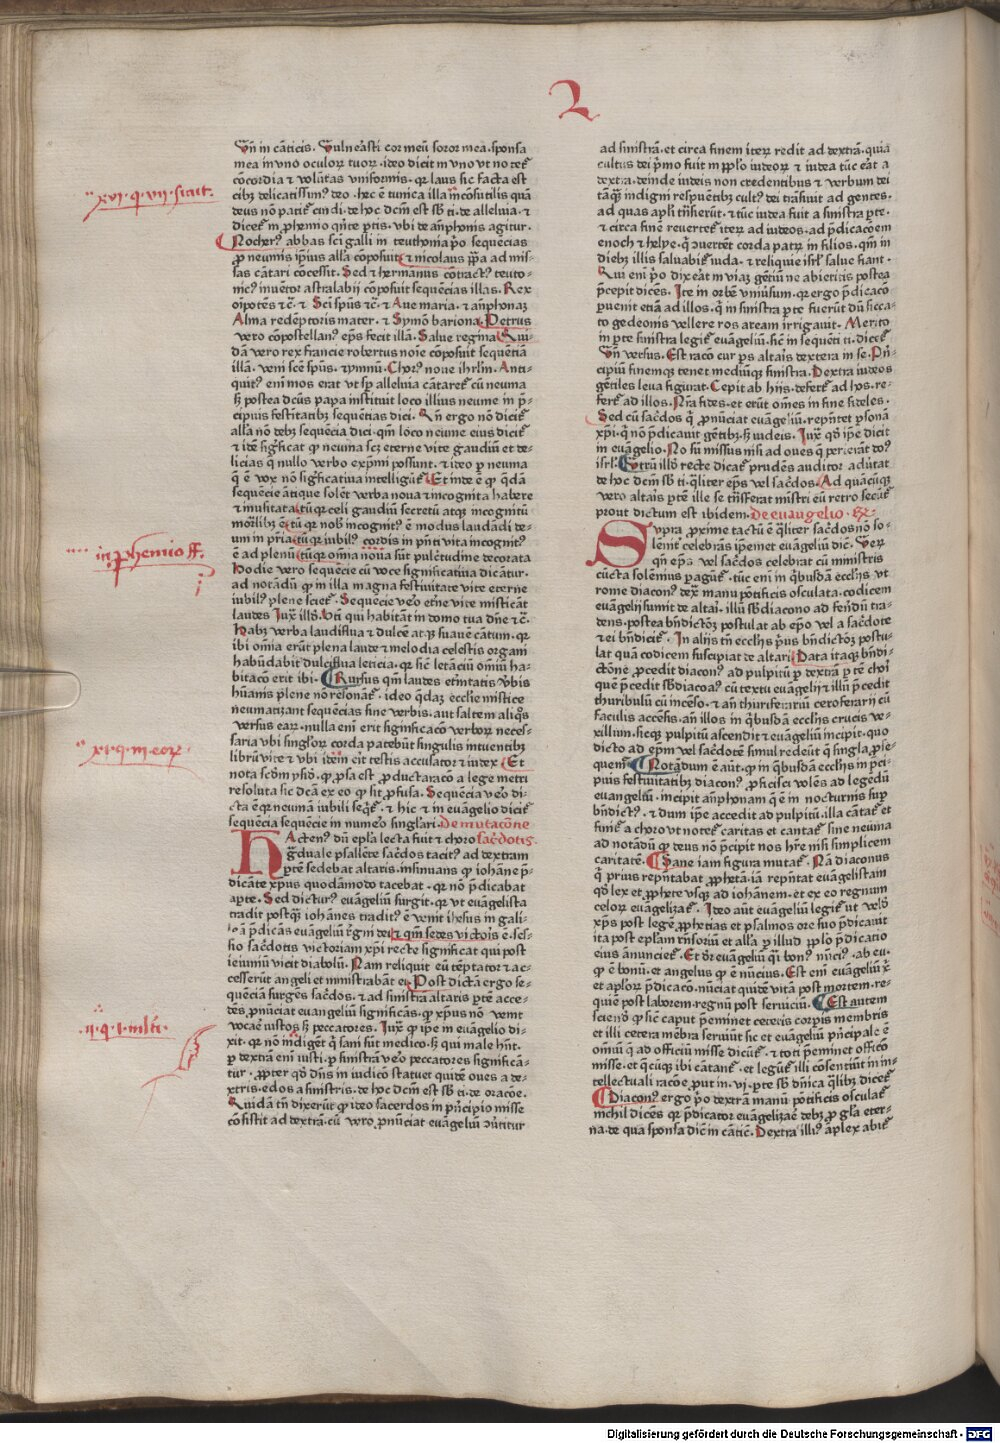 R
Vñ in cãticis. Vulnerasti cor meũ soror mea sponsa
mea in uno oculorꝝ tuorꝝ. ideo dicit in uno vt notet᷑
cõcordia et volũtas vniformis. qꝛ laus sic facta est
deus non patit᷑ scindi. de hoc dicm̃ est sb ti. de alleluia. et
abbas sci galli in teuthonia p̃o sequẽcias
p neumis ip̃ius alla composuit et nicolaus pp̃a ad mis-
sas cãtari cõcessit. Sed et hermannus cõtractꝰ teuto-
nicꝰ inuẽtor astralabij cõposuit sequẽcias illas. Rex
oĩpotẽs ⁊c̃. et Sci sp̃us ⁊c̃. et Aue maria. et añphonaz
Alma redẽptoris mater. et Symõ bariona. Petrus
vero cõpostellanꝰ ep̃s fecit illã. Salue regina Qui-
dã vero rex francie robertus noĩe cõposuit sequẽciã
illã. veni scẽ sp̃us. et ymnũ. Chorꝰ noue ihrlm̃. Anti-
quitꝰ eni mos erat vt sp alleluia cãtaret᷑ cũ neuma
sꝫ postea decus papa instituit loco illius neume in p̃-
cipuis festitatibꝫ sequẽcias dici. Qñ ergo nõ dicit᷑
alla nõ debꝫ sequẽcia dici. qm̃ loco neume eius dicit᷑
et idẽ sigficat qꝛ neuma scꝫ eterne vite gaudiũ et de-
licias q̃ nullo verbo exp̃mi possunt. et ideo p neuma
sequẽcie ãtique solẽt verba noua et incognita habere
et inusitata tũ qꝛ celi gaudiũ secretũ atqꝫ incognitũ
um in pria tũ qꝛ iubilꝰ cordis in pñti vita incognitꝰ
ẽ ad plenũ tũ qꝛ omĩa noua sũt pulcritudine decorata
Hodie vero sequẽcie cũ voce significatiua dicãtur.
ad notãdũ qꝛ in illa magna festiuitate vite eterne
iubilꝰ plene sciet᷑. Sequẽcie vero etne vite misticãt
laudes Iuxᷓ illd. bti qui habitãt in domo tua dñe ⁊c̃.
Habꝫ verba laudiflua et dulcẽ atqꝫ suauẽ cãtum. qꝛ
ibi omĩa erũt plena laude et melodia celestis organi
habũdabit dulciflua leticia. qꝛ sic letãciũ omniũ ha-
bitacõ erit ibi. Rursus qm̃ laudes etĩnitatis vbis
hũanis plene nõ resonãt᷑. ideo qdaꝫ ecclie mistice
neumatizant sequẽcias sine verbis. aut saltem aliq̃s
versus earꝝ. nulla eni erit significacõ verborꝝ neces-
saria vbi singlorꝝ corda patebũt singulis intuentibꝫ
librũ vite et vbi idem̃ erit testis accusator et iudex Et
resoluta sic dcã ex eo qꝛ sit pfusa. Sequẽcia vero di-
cta ẽ qꝛ neumã iubili seqt᷑. et hic et in euãgelio dicit᷑
sequẽcia sequẽcie in numero singlari. De mutacõne
sacerdotis.
HActenꝰ dũ epla lecta fuit et choro
gduale psallere sacdos tacitꝰ ad dextram
ptẽ sedebat altaris. insinuans qꝛ iohãne p̃-
dicãte xpus quodãmodo tacebat. qꝛ nõ p̃dicabat
apte. Sed dictur euãgeliũ surgit. qꝛ vt euãgelista
tradit postqꝫ iohãnes traditꝰ ẽ venit ihesus in gali-
leã p̃dicãs euãgeliũ rgni dei et qm̃ sedes victoris ẽ. ses-
sio sacdotis victoriam xpi recte significat qui post
ieiuniũ vicit diabolũ. Nam reliquit eũ tẽptator et ac-
cesserũt angeli et ministrabãt ei. Post dictã ergo se-
quẽciã surgẽs sacdos. et ad sinistrã altaris ptẽ acce-
dẽs. pnũciat euangeliũ significãs. qꝛ xpus nõ venit
vocare iustos sꝫ peccatores. Iuxᷓ qꝛ ip̃e in euãgelio di-
xit. qꝛ nõ indiget᷑ q̃ sani sũt medico. sꝫ qui male hñt.
P dextrã eni iusti. p sinistrã vero peccatores significã-
tur. ppter qd dñs in iudicio statuet quidẽ oues a de-
xtris. edos a sinistris. de hoc dicm̃ est sb ti. de oracõe.
Quidã tñ dixerũt qꝛ ideo sacerdos in p̃ncipio misse
cõsistit ad dextrã. cũ vero pnũciat euãgeliũ
ad sinistrã. et circa finem iterꝝ redit ad dextrã. quia
cultus dei p̃mo fuit in pplo iudeorꝝ et iudea tũc erat a
dextra. deinde iudeis non credentibus et verbum dei
tãqꝫ indigni respuẽtibꝫ cultꝰ dei trãsiuit ad gentes.
ad quas apli trãsierũt. et tũc iudea fuit a sinistra pte.
et circa finẽ reuertet᷑ iterꝝ ad iudeos. ad p̃dicacoem
enoch et helye. q̃ conuertet corda patrũ in filios. qm̃ in
diebꝫ illis saluabit᷑ iuda. et reliquie isrl salue fiant.
Qui eni p̃o dixerat in viaꝫ gẽtiũ ne abieritis postea
p̃cepit dicẽs. Ite in orbẽ vniũsum. qꝛ ergo p̃dicacõ
puenit etiã ad illos. q̃ in sinistra pte fuerũt dũ sicca-
to gedeonis vellere ros aream irrigauit. Merito
in pte sinistra legit᷑ euãgeliũ. sicut in sequẽti ti. dicet᷑
Vñ versus. Est racõ cur ps altaris dextera in se. Pri-
cipiũ finemqꝫ tenet mediũqꝫ sinistra. Dextra iudeos
gẽtiles leua figurat. Cepit ab hijs. defert᷑ ad hos. re-
fert᷑ ad illos. Nra fides. et erũt omẽs in fine fideles.
Sed cũ sacdos q̃ pnũciat euãgeliũ. repñtet psonã
xpi. q̃ nõ p̃dicauit gẽtibꝫ. sꝫ iudeis. Iuxᷓ qd ip̃e dicit
in euãgelio. Nõ sũ missus nisi ad oues q̃ perierãt doꝰ
isrl. Vtrũ illd recte dicat᷑ prudẽs auditor adũtat
de hoc dicm̃ est sb ti. qualiter ep̃s vel sacdos. Ad quãcũqꝫ
vero altaris ptẽ ille se trãsferat mistri eũ retro secũt᷑
prout dictum est ibidem. De euangelio.
SVpra proxime tactũ ẽ qualiter sacdos nõ so-
leñit᷑ celebrãs ip̃emet euãgeliũ dic̃. Verꝝ
qñ ep̃s vel sacdos celebrat cũ ministris
cũcta solẽnius pagũt᷑. tũc eni in q̃busdã ecclijs vt
rome diaconꝰ dexᷓ manu põtificis osculata. codicem
euãgelij sumit de altari. illũ sbdiacono ad ferẽdũ tra-
dens. postea bñdictõꝫ postulat ab ep̃o vel a sacdote
et ei bñdicit᷑. In alijs tñ ecclijs prius bñdictõꝫ postu-
lat quã codicem suscipiat de altari. Data itaqꝫ bñdi-
ctõne pcedit diaconꝰ ad pulpitũ p dextrã ptẽ chori
quẽ p̃cedit sbdiaconꝰ cũ textu euãgelij et illũ p̃cedit
thuribulũ cũ incẽso. et añ thuriferariũ ceroferarij cũ
faculis accẽsis. añ illos in q̃busdã ecclijs crucis ve-
xillum. sicqꝫ pulpitũ ascendit et euãgeliũ incipit. quo
dicto ad ep̃m vel sacdotẽ simul redeũt q̃ singla pse-
quem̃. Notãdum ẽ aũt. qꝛ in q̃busdã ecclijs in p̃ci-
puis festiuitatibꝫ diaconꝰ pficisci volẽs ad legẽdũ
euangeliũ. incipit añphonam q̃ ẽ in nocturnis sup
bñdictꝰ. et dum ip̃e accedit ad pulpitũ. illa cãtat᷑ et
finit᷑ a choro vt notet᷑ caritas et cantat᷑ sine neuma
ad notãdũ qꝛ deus nõ p̃cipit nos hr̃e nisi simplicem
caritatẽ. Sane iam figura mutat᷑. Nã diaconus
q̃ prius repñtabat pphetã. iã repñtat euãgelistam
qd lex et pphete vsqꝫ ad iohãnem. et ex eo regnum
celorꝝ euãgelizat᷑. Ideo aũt euãgeliũ legit᷑
xp̃s post legẽ. pphetias et psalmos ore suo p̃dicauit
ita post eplam rñsoriũ et alla p illud pplo p̃dicatio
eius anũciet᷑. Et dr̃ euãgeliũ q̃si bonꝰ nũciꝰ. ab eu.
qꝛ ẽ bonũ. et angelus qꝛ ẽ nũcius. Est eni euãgeliũ xpi
et aplorꝝ p̃dicacõ. nũciat quidẽ vitã post mortem. re-
quiẽ post laborem. regnũ post seruiciũ. Est autem
sciendũ qꝛ sicut caput p̃eminet ceteris corpis membris
et illi cetera mẽbra seruiũt sic et euãgeliũ p̃ncipale ẽ
omniũ q̃ ad officiũ misse dicũt᷑. et toti p̃eminet officio
misse. et q̃cũqꝫ ibi cãtant᷑. et legũt᷑ illi cõsentiũt in in-
tellectuali racõe. put in. vi. pte sb dñica q̃libꝫ dicet᷑
Diaconꝰ ergo p̃o dexterã manũ põtificis osculat᷑
nichil dicẽs qꝛ p̃dicator euãgelizare debꝫ p gla eter-
na. de qua sponsa dic̃ in cãtic̃. Dextra illiꝰ aplex abit᷑
xvi. q. vii. sicut.
in phemio ff.
ii. q. i. mlti.
Digitalisierung gefördert durch die Deutsche Forschungsgemeinschaft - DFG